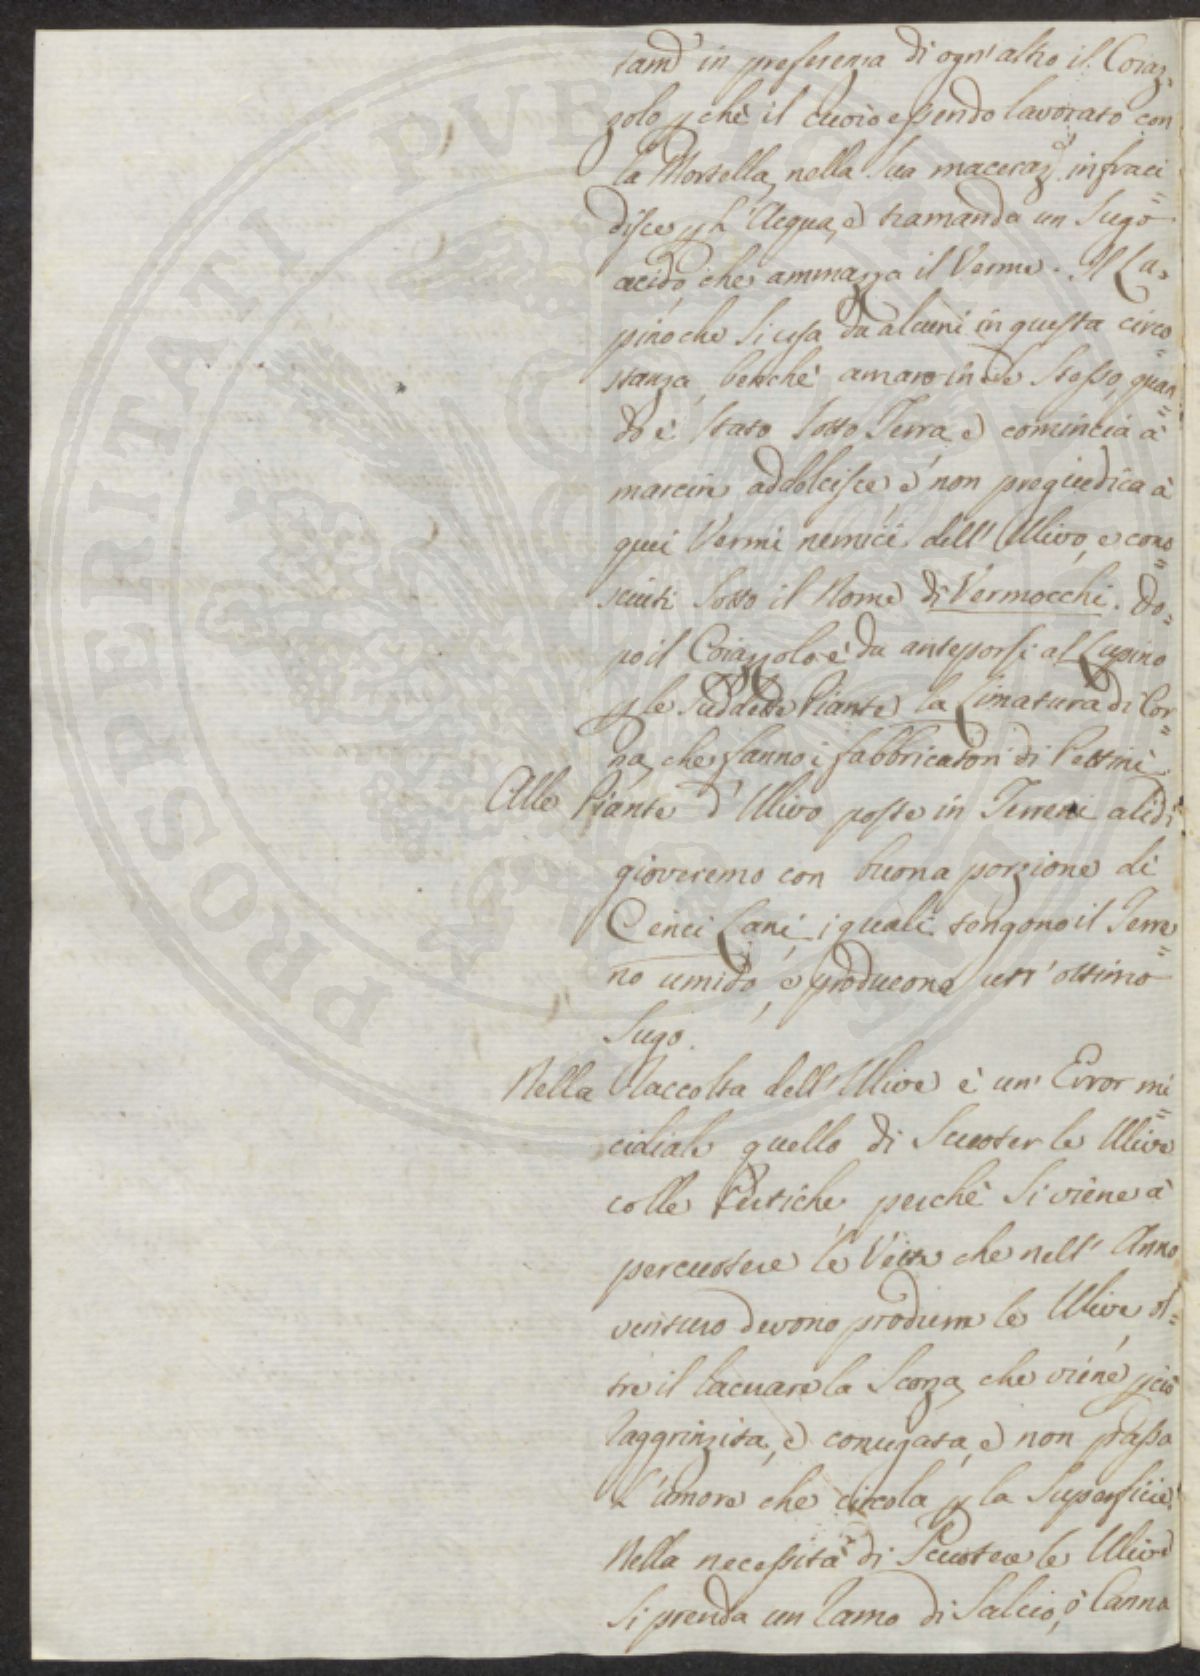 tamd' in preferenza di ogn'altro il Coiaz-
zolo p chè il cuoio essendo lavorato con
la Mortella, nella sua maceraz.e infraci=
disce p L'Acqua, e tramanda un Sugo
acido, che ammazza il Verme. Il Lu-
pino che si usa da alcuni in questa circo=
stanza, benchè amaro in se stesso, quan=
do è stato sotto Terra, e comincia à
marcire addolcisce, e non pregiudica à
quei Vermi nemici dell'Ulivo, e cono=
sciuti sotto il Nome di Vermocchi. Do-
po il Coiazzolo è da anteporsi al Lupino
p le suddette Piante la Limatura di Cor=
na, che fanno i fabbricatori di Pettini.
Alle Piante d'Ulivo poste in Terreni alidi
gioveremo con buona porzione di
Cenci Lani, i quali tengono il Terre=
no umido, e producono un'ottimo
Sugo.
Nella Raccolta dell'Ulive è un'Error mi=
cidiale quello di Scuoter le Ulive
colle Pertiche, perchè si viene à
percuotere le Vette che nell'Anno
venturo devono produrre le Ulive, ol=
tre il lacerare la Scorza, che viene p ciò
raggrinzita, e corrugata, e non passa
L'umore che circola p la Superficie.
Nella necessità di Scuotere le Ulive
si prenda un ramo di Salcio, ò Canna